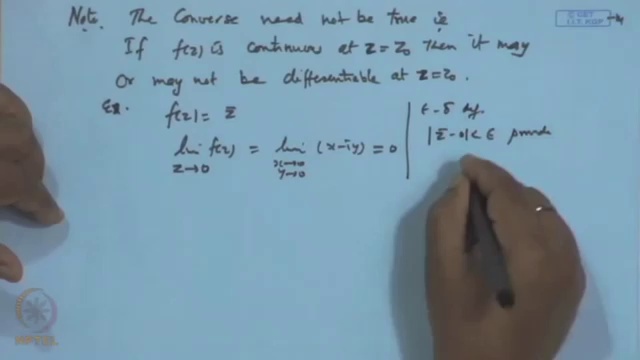 Note. The Converse need not be true ie
If f(z) is continuous at z=z₀ Then it may
Or may not be differentiable at z=z₀.
Ex. f(z) = z̄
lim f(z) = lim (x-iy) = 0
z→0 x→0
y→0
ϵ-δ def.
|z̄-0|< ϵ provide
© CET
I.I.T. KGP
NPTEL